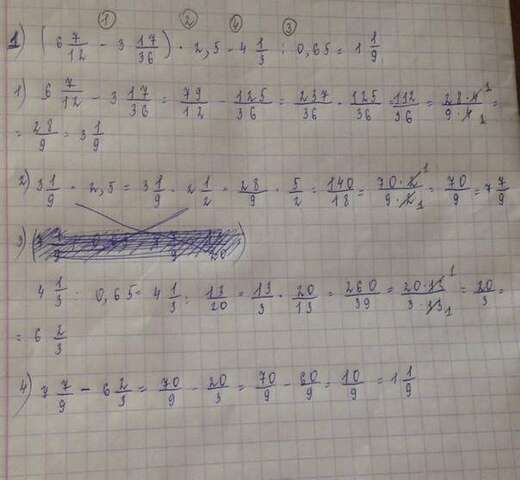 ① ② ④ ③
1) (6 7/12 - 3 17/36) · 2,5 - 4 1/3 : 0,65 = 1 1/9
1) 6 7/12 - 3 17/36 = 79/12 - 125/36 = 237/36 - 125/36 = 112/36 = 28·4/9·4 1 1 =
= 28/9 = 3 1/9
2) 3 1/9 · 2,5 = 3 1/9 · 2 1/2 = 28/9 · 5/2 = 140/18 = 70·2/9·2 1 1 = 70/9 = 7 7/9
3)
4 1/3 : 0,65 = 4 1/3 : 13/20 = 13/3 · 20/13 = 260/39 = 20·13/3·13 1 1 = 20/3 =
= 6 2/3
4) 7 7/9 - 6 2/3 = 70/9 - 20/3 = 70/9 - 60/9 = 10/9 = 1 1/9